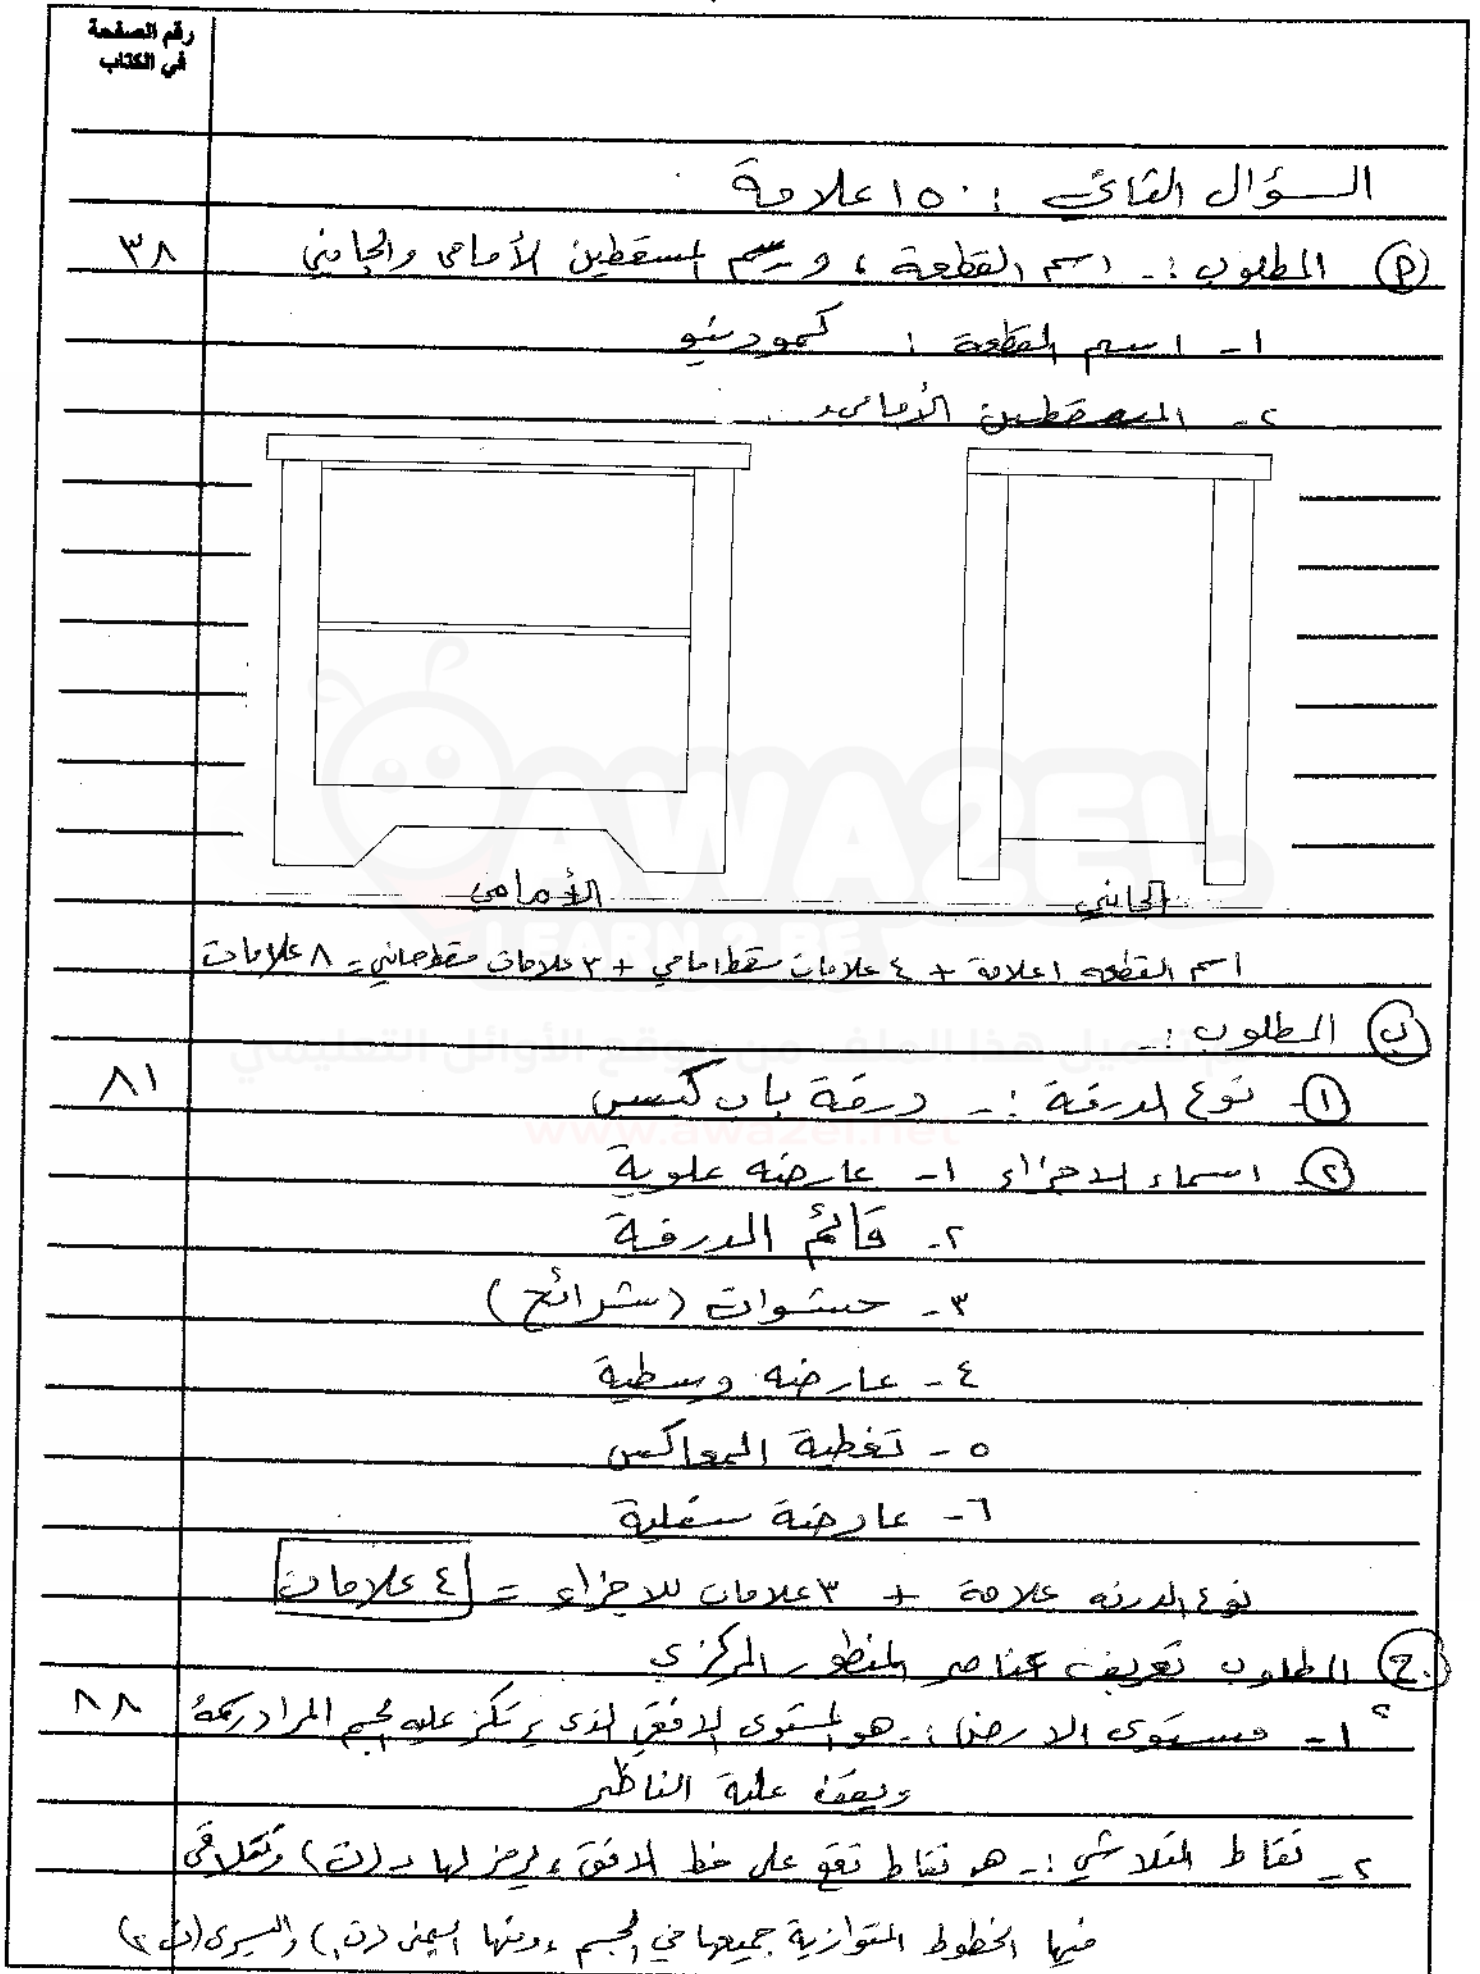 رقم الصفحة
في الكتاب
السؤال الثاني : ١٥ علامة
أ المطلوب :- اسم القطعة ، ورسم المسقطين الأمامي والجانبي ٣٨
١- اسم القطعة : كمودينو
٢- المسقطين الأمامي
الأمامي الجانبي
اسم القطعة ١ علامة + ٤ علامات مسقط امامي + ٣ علامات مسقط جانبي = ٨ علامات
ب المطلوب :-
تم تحميل هذا الملف من موقع الأوائل التعليمي
١- نوع الدرفة :- درفة باب كبس ٨١
www.awa2el.net
٢- اسماء الاجزاء ١- عارضه علوية
٢- قائم الدرفة
٣- حشوات (شرائح)
٤- عارضه وسطية
٥- تغطية المعاكس
٦- عارضة سفلية
نوع الدرفه علامة + ٣ علامات للاجزاء = ٤ علامات
ج المطلوب تعريف عناصر المنظور المركزي
١- مستوى الارض :- هو المستوى الافقي الذي يرتكز عليه الجسم المراد رسمه ٨٨
ويقف عليه الناظر
٢- نقاط التلاشي :- هي نقاط تقع على خط الافق ويرمز لها بـ (ت) وتتلاقى
فيها الخطوط المتوازية جميعها في الجسم ومنها اليمنى (ت١) واليسرى (ت٢)
AWA2EL
LEARN 2 BE